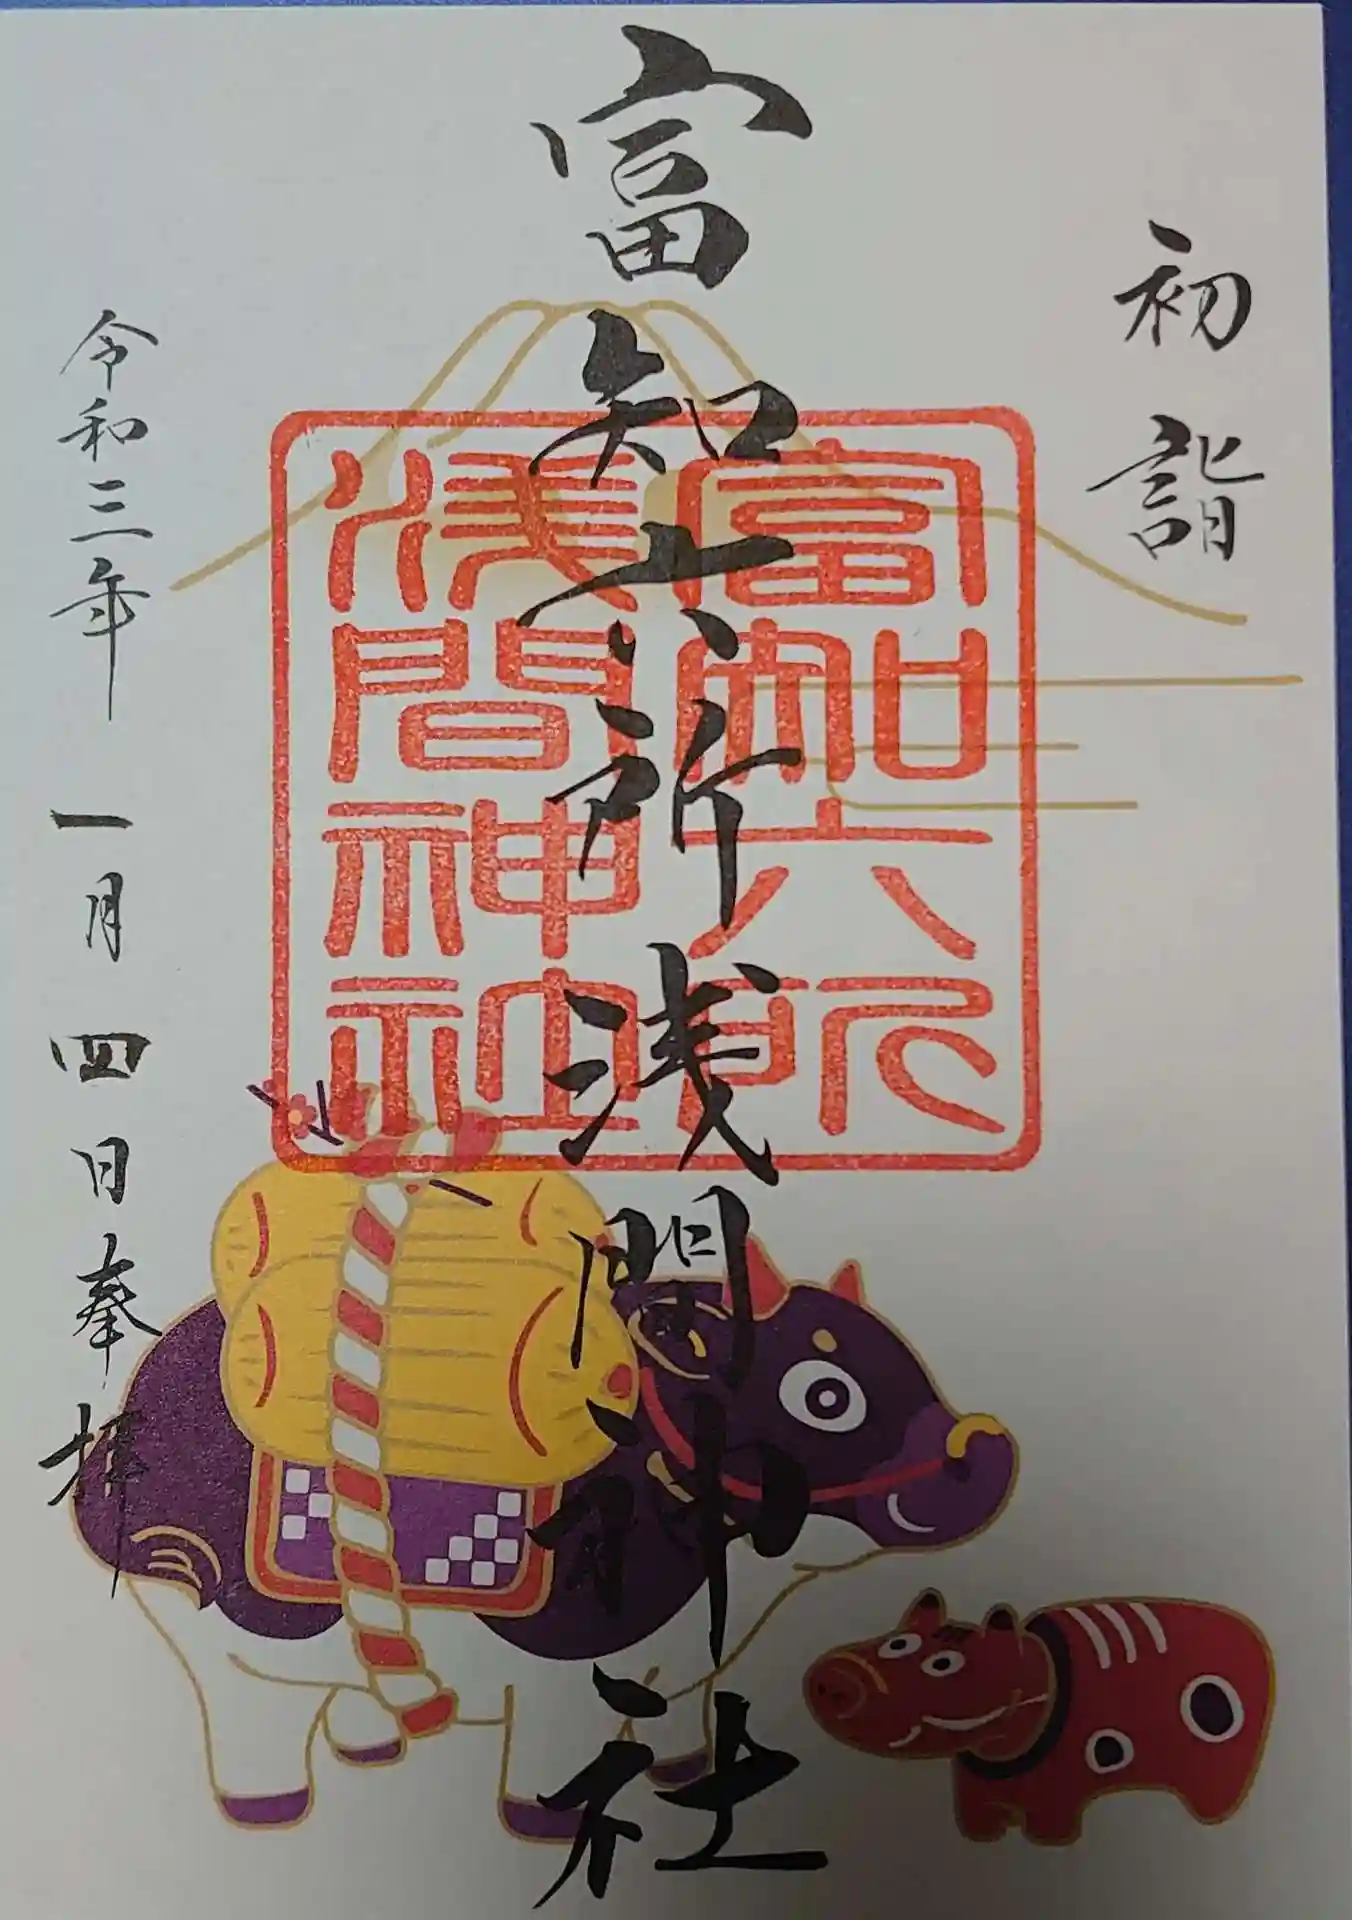 初詣
富知六所浅間神社
富知六所
浅間神社
令和三年一月四日奉拝